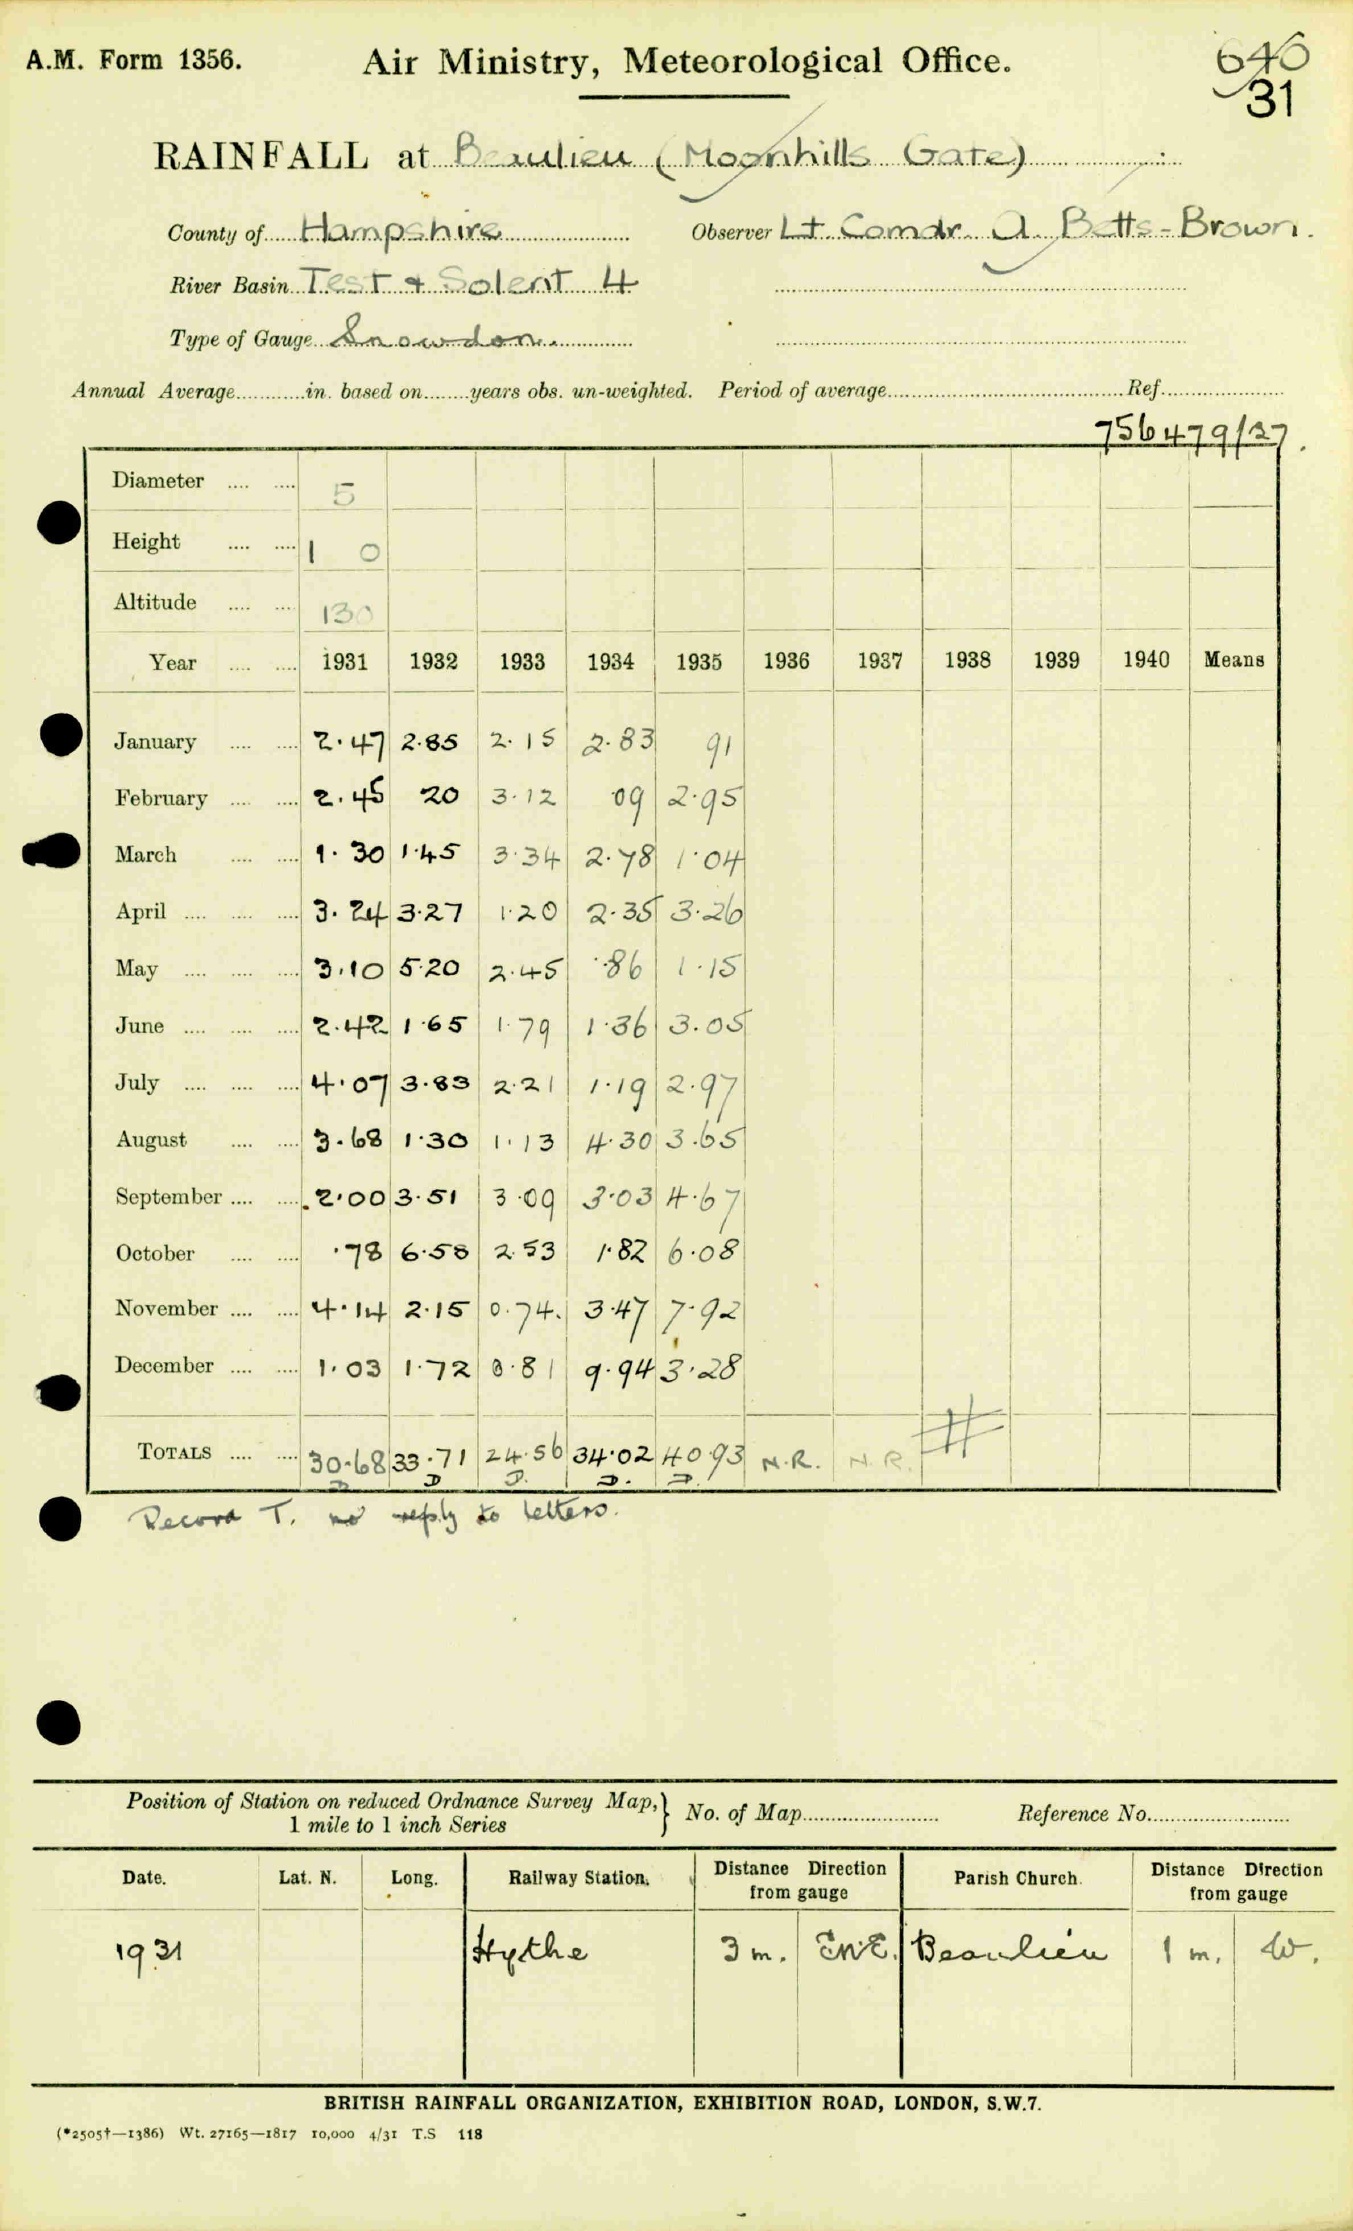 A.M. Form 1356.
Air Ministry, Meteorological Office.
640
31
RAINFALL at Beaulieu (Moonhills Gate)
County of Hampshire
Observer Lt. Comdr. A. Betts-Brown.
River Basin Test + Solent 4
Type of Gauge Snowdon.
Annual Average............in. based on........years obs. un-weighted. Period of average............Ref............
756479/37.
Diameter .... .... 5
Height .... .... 1 0
Altitude .... .... 130
Year .... .... 1931 1932 1933 1934 1935 1936 1937 1938 1939 1940 Means
January .... .... 2.47 2.85 2.15 2.83 91
February .... .... 2.45 20 3.12 .09 2.95
March .... .... 1.30 1.45 3.34 2.78 1.04
April .... .... .... 3.24 3.27 1.20 2.35 3.26
May .... .... .... 3.10 5.20 2.45 .86 1.15
June .... .... .... 2.42 1.65 1.79 1.36 3.05
July .... .... .... 4.07 3.83 2.21 1.19 2.97
August .... .... 3.68 1.30 1.13 4.30 3.65
September .... .... 2.00 3.51 3.09 3.03 4.67
October .... .... .78 6.58 2.53 1.82 6.08
November .... .... 4.14 2.15 0.74. 3.47 7.92
December .... .... 1.03 1.72 0.81 9.94 3.28
TOTALS .... .... 30.68 33.71 24.56 34.02 40.93 N.R. N.R.
D D D. D. D.
Record T. no reply to letters.
Position of Station on reduced Ordnance Survey Map, } No. of Map............ Reference No............
1 mile to 1 inch Series
Date. Lat. N. Long. Railway Station. Distance Direction from gauge Parish Church. Distance Direction from gauge
1931 Hythe 3 m. ENE. Beaulieu 1 m. W.
BRITISH RAINFALL ORGANIZATION, EXHIBITION ROAD, LONDON, S.W.7.
(*2505†—1386) Wt. 27165—1817 10,000 4/31 T.S 118